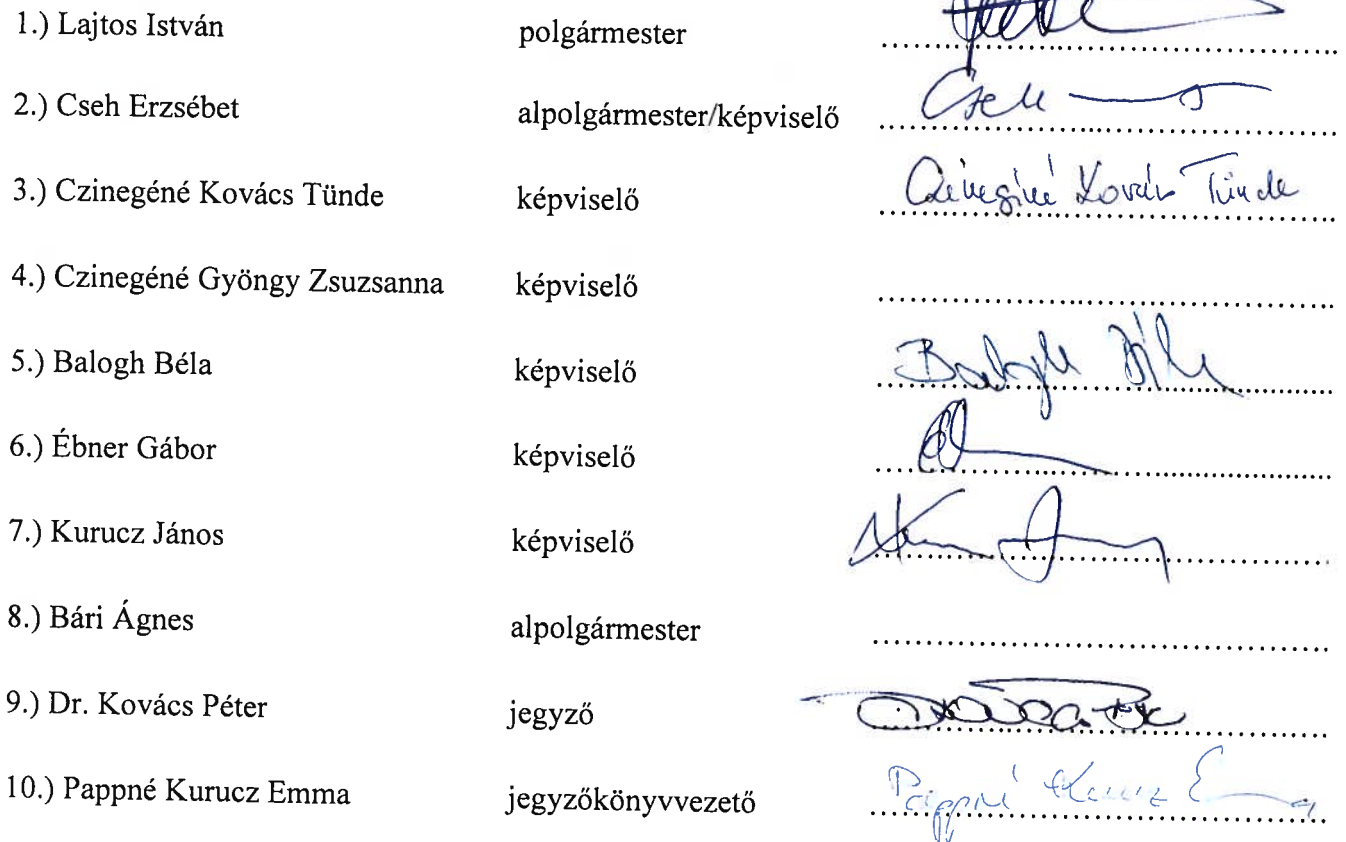 1.) Lajtos István polgármester ........................................
2.) Cseh Erzsébet alpolgármester/képviselő Cseh ........................................
3.) Czinegéné Kovács Tünde képviselő Czinegéné Kovács Tünde ........................................
4.) Czinegéné Gyöngy Zsuzsanna képviselő ........................................
5.) Balogh Béla képviselő Balogh Béla ........................................
6.) Ébner Gábor képviselő ........................................
7.) Kurucz János képviselő ........................................
8.) Bári Ágnes alpolgármester ........................................
9.) Dr. Kovács Péter jegyző ........................................
10.) Pappné Kurucz Emma jegyzőkönyvvezető Pappné Kurucz E ........................................